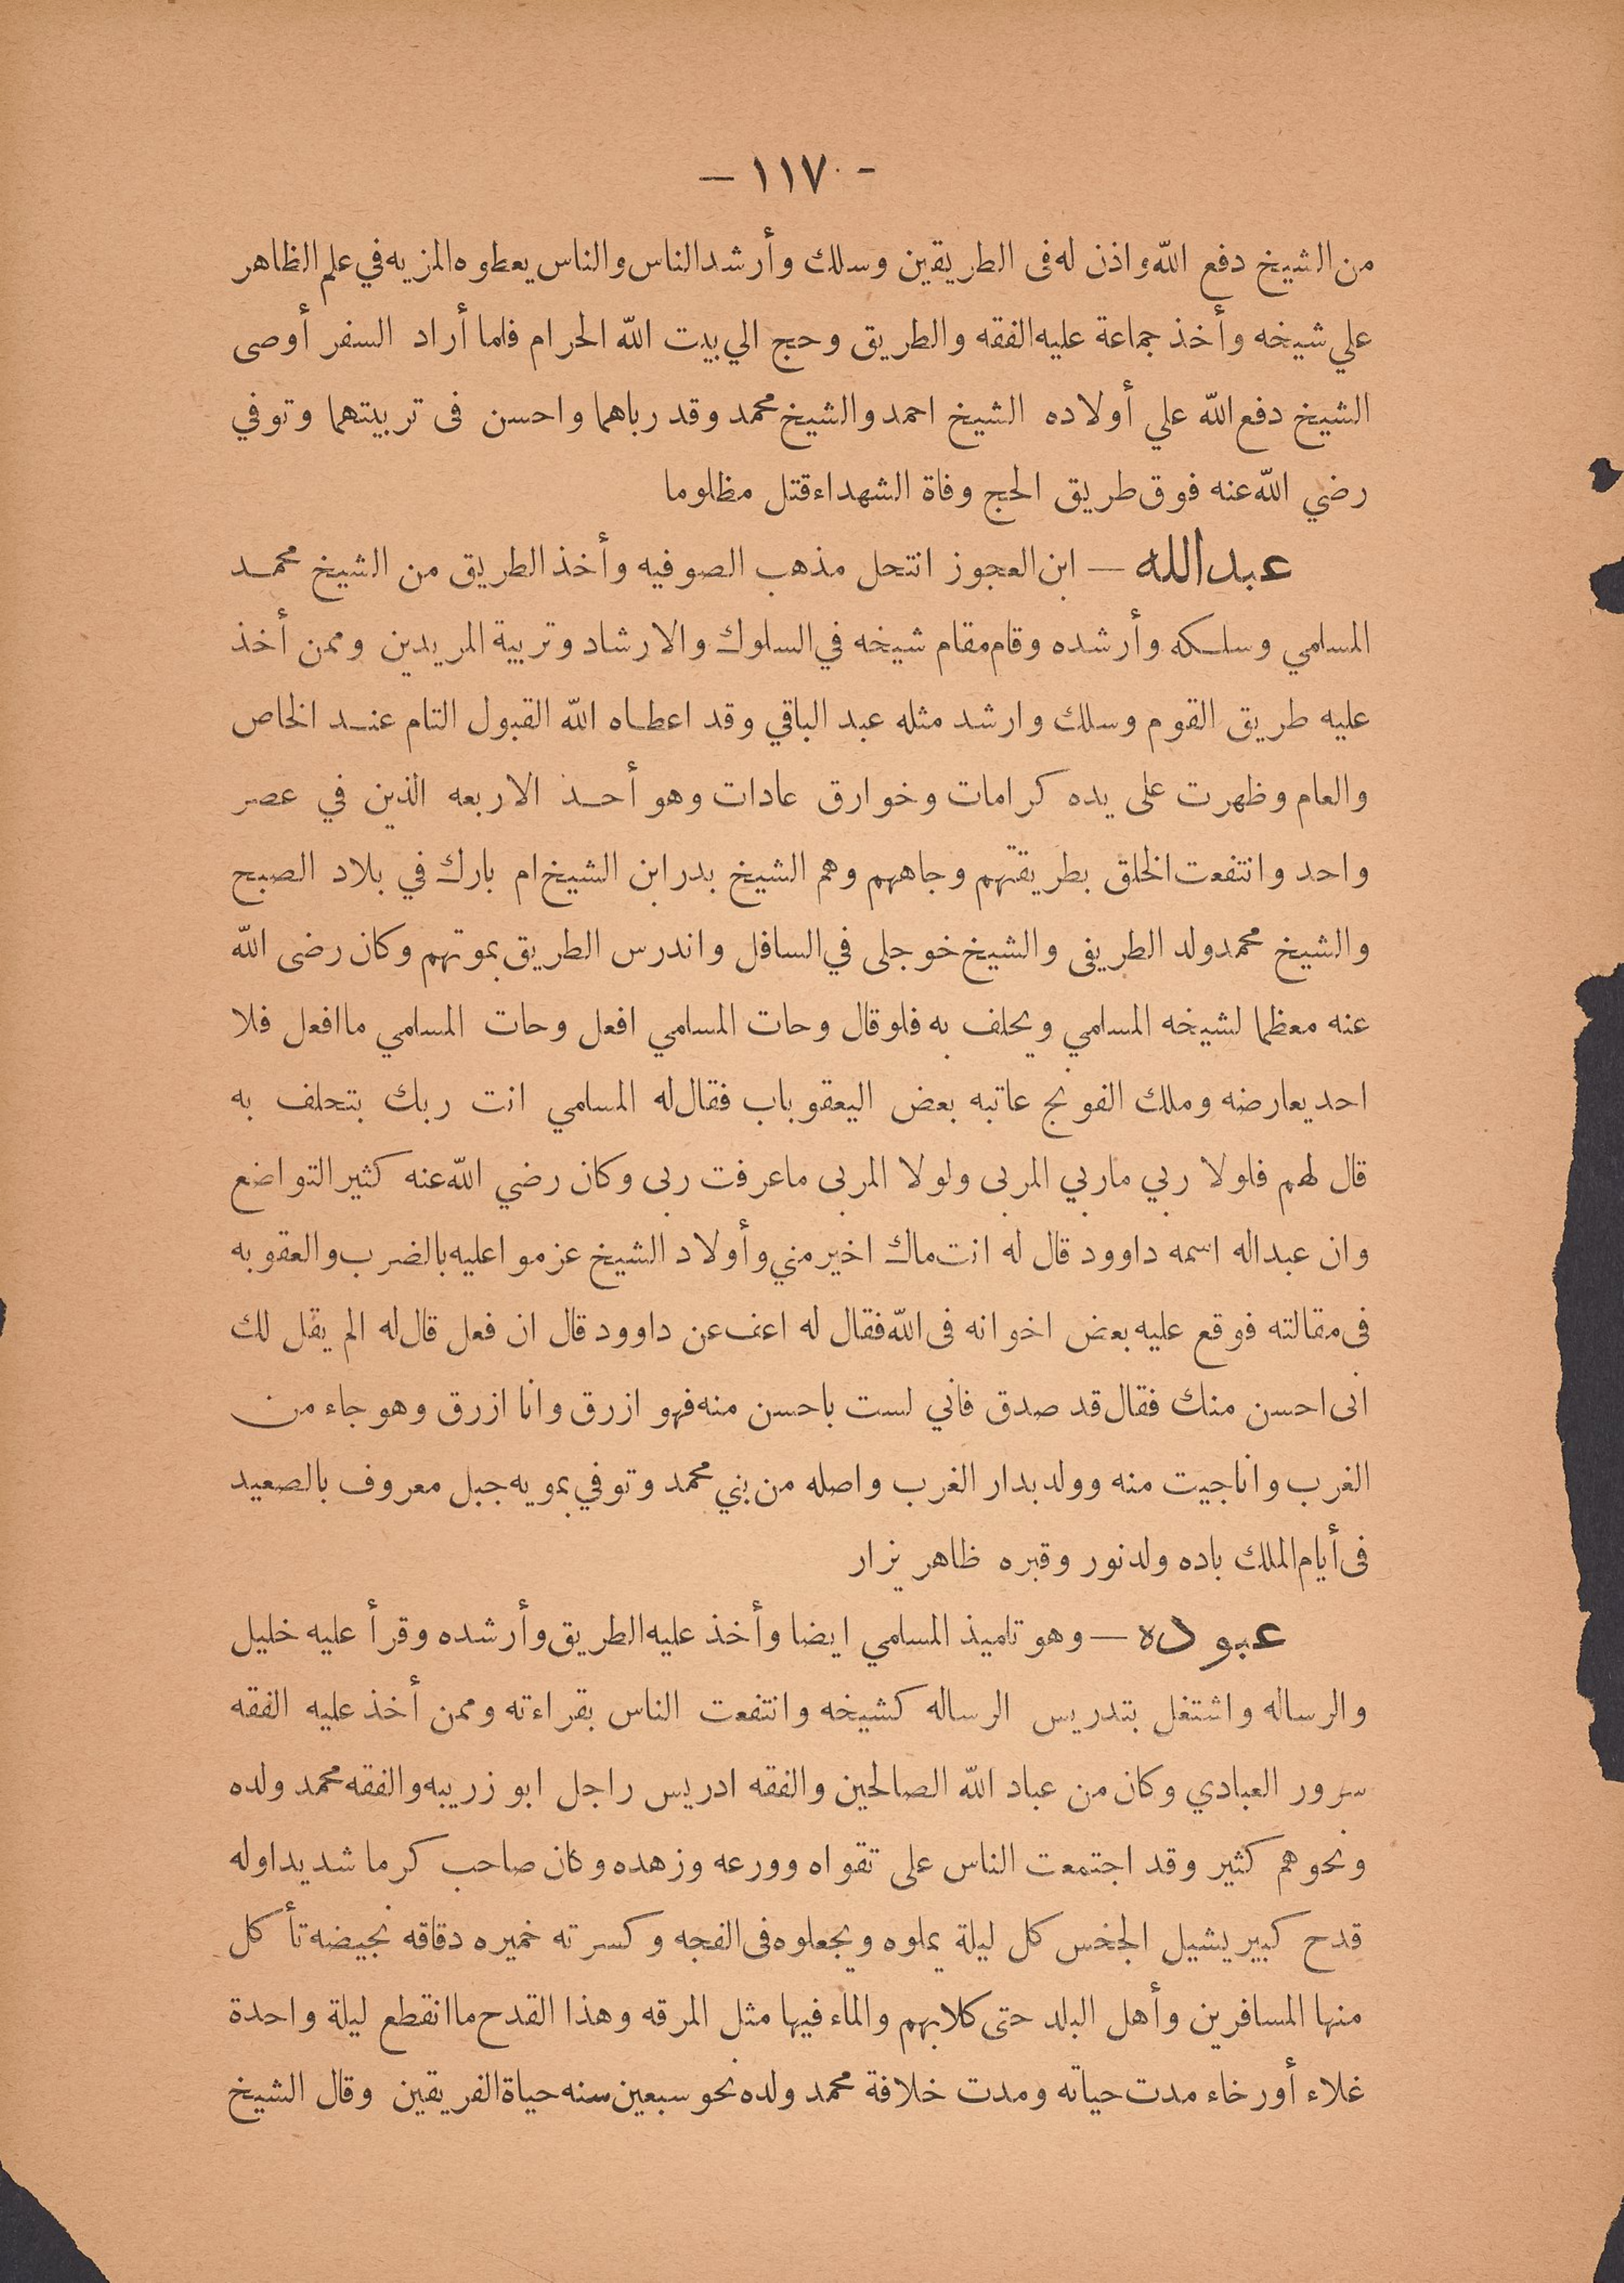 - ١١٧ -
من الشيخ دفع الله واذن له فى الطريقين وسلك وأرشد الناس والناس يعطوه المزيه في علم الظاهر
علي شيخه وأخذ جماعة عليه الفقه والطريق وحج الي بيت الله الحرام فلما أراد السفر أوصى
الشيخ دفع الله علي أولاده الشيخ احمد والشيخ محمد وقد رباهما واحسن فى تربيتهما وتوفي
رضي الله عنه فوق طريق الحج وفاة الشهداء قتل مظلوما
عبدالله — ابن العجوز انتحل مذهب الصوفيه وأخذ الطريق من الشيخ محمد
المسلمي وسلكه وأرشده وقام مقام شيخه في السلوك والارشاد وتربية المريدين وممن أخذ
عليه طريق القوم وسلك وارشد مثله عبد الباقي وقد اعطاه الله القبول التام عند الخاص
والعام وظهرت على يده كرامات وخوارق عادات وهو أحد الاربعه الذين في عصر
واحد وانتفعت الخلق بطريقتهم وجاههم وهم الشيخ بدر ابن الشيخ ام بارك في بلاد الصبح
والشيخ محمد ولد الطريفى والشيخ خوجلى في السافل واندرس الطريق بموتهم وكان رضى الله
عنه معظما لشيخه المسلمي ويحلف به فلو قال وحات المسلمي افعل وحات المسلمي ما افعل فلا
احد يعارضه وملك الفونج عاتبه بعض اليعقوباب فقال له المسلمي انت ربك بتحلف به
قال لهم فلولا ربي ماربي المربى ولولا المربى ماعرفت ربى وكان رضي الله عنه كثير التواضع
وان عبداله اسمه داوود قال له انت ماك اخير مني وأولاد الشيخ عزموا عليه بالضرب والعقوبه
فى مقالته فوقع عليه بعض اخوانه فى الله فقال له اعف عن داوود قال ان فعل قال له الم يقل لك
انى احسن منك فقال قد صدق فاني لست باحسن منه فهو ازرق وانا ازرق وهو جاء من
الغرب وانا جيت منه وولد بدار الغرب واصله من بني محمد وتوفي بمويه جبل معروف بالصعيد
فى أيام الملك باده ولد نور وقبره ظاهر يزار
عبوده — وهو تلميذ المسلمي ايضا وأخذ عليه الطريق وأرشده وقرأ عليه خليل
والرساله واشتغل بتدريس الرساله كشيخه وانتفعت الناس بقراءته وممن أخذ عليه الفقه
سرور العبادي وكان من عباد الله الصالحين والفقه ادريس راجل ابو زريبه والفقه محمد ولده
ونحوهم كثير وقد اجتمعت الناس على تقواه وورعه وزهده وكان صاحب كرما شديدا وله
قدح كبير يشيل الجخس كل ليلة يملوه ويجعلوه فى الفجه وكسرته خميره دقاقه نجيضه تأكل
منها المسافرين وأهل البلد حتى كلابهم والماء فيها مثل المرقه وهذا القدح ما انقطع ليلة واحدة
غلاء أو رخاء مدت حياته ومدت خلافة محمد ولده نحو سبعين سنه حياة الفريقين وقال الشيخ